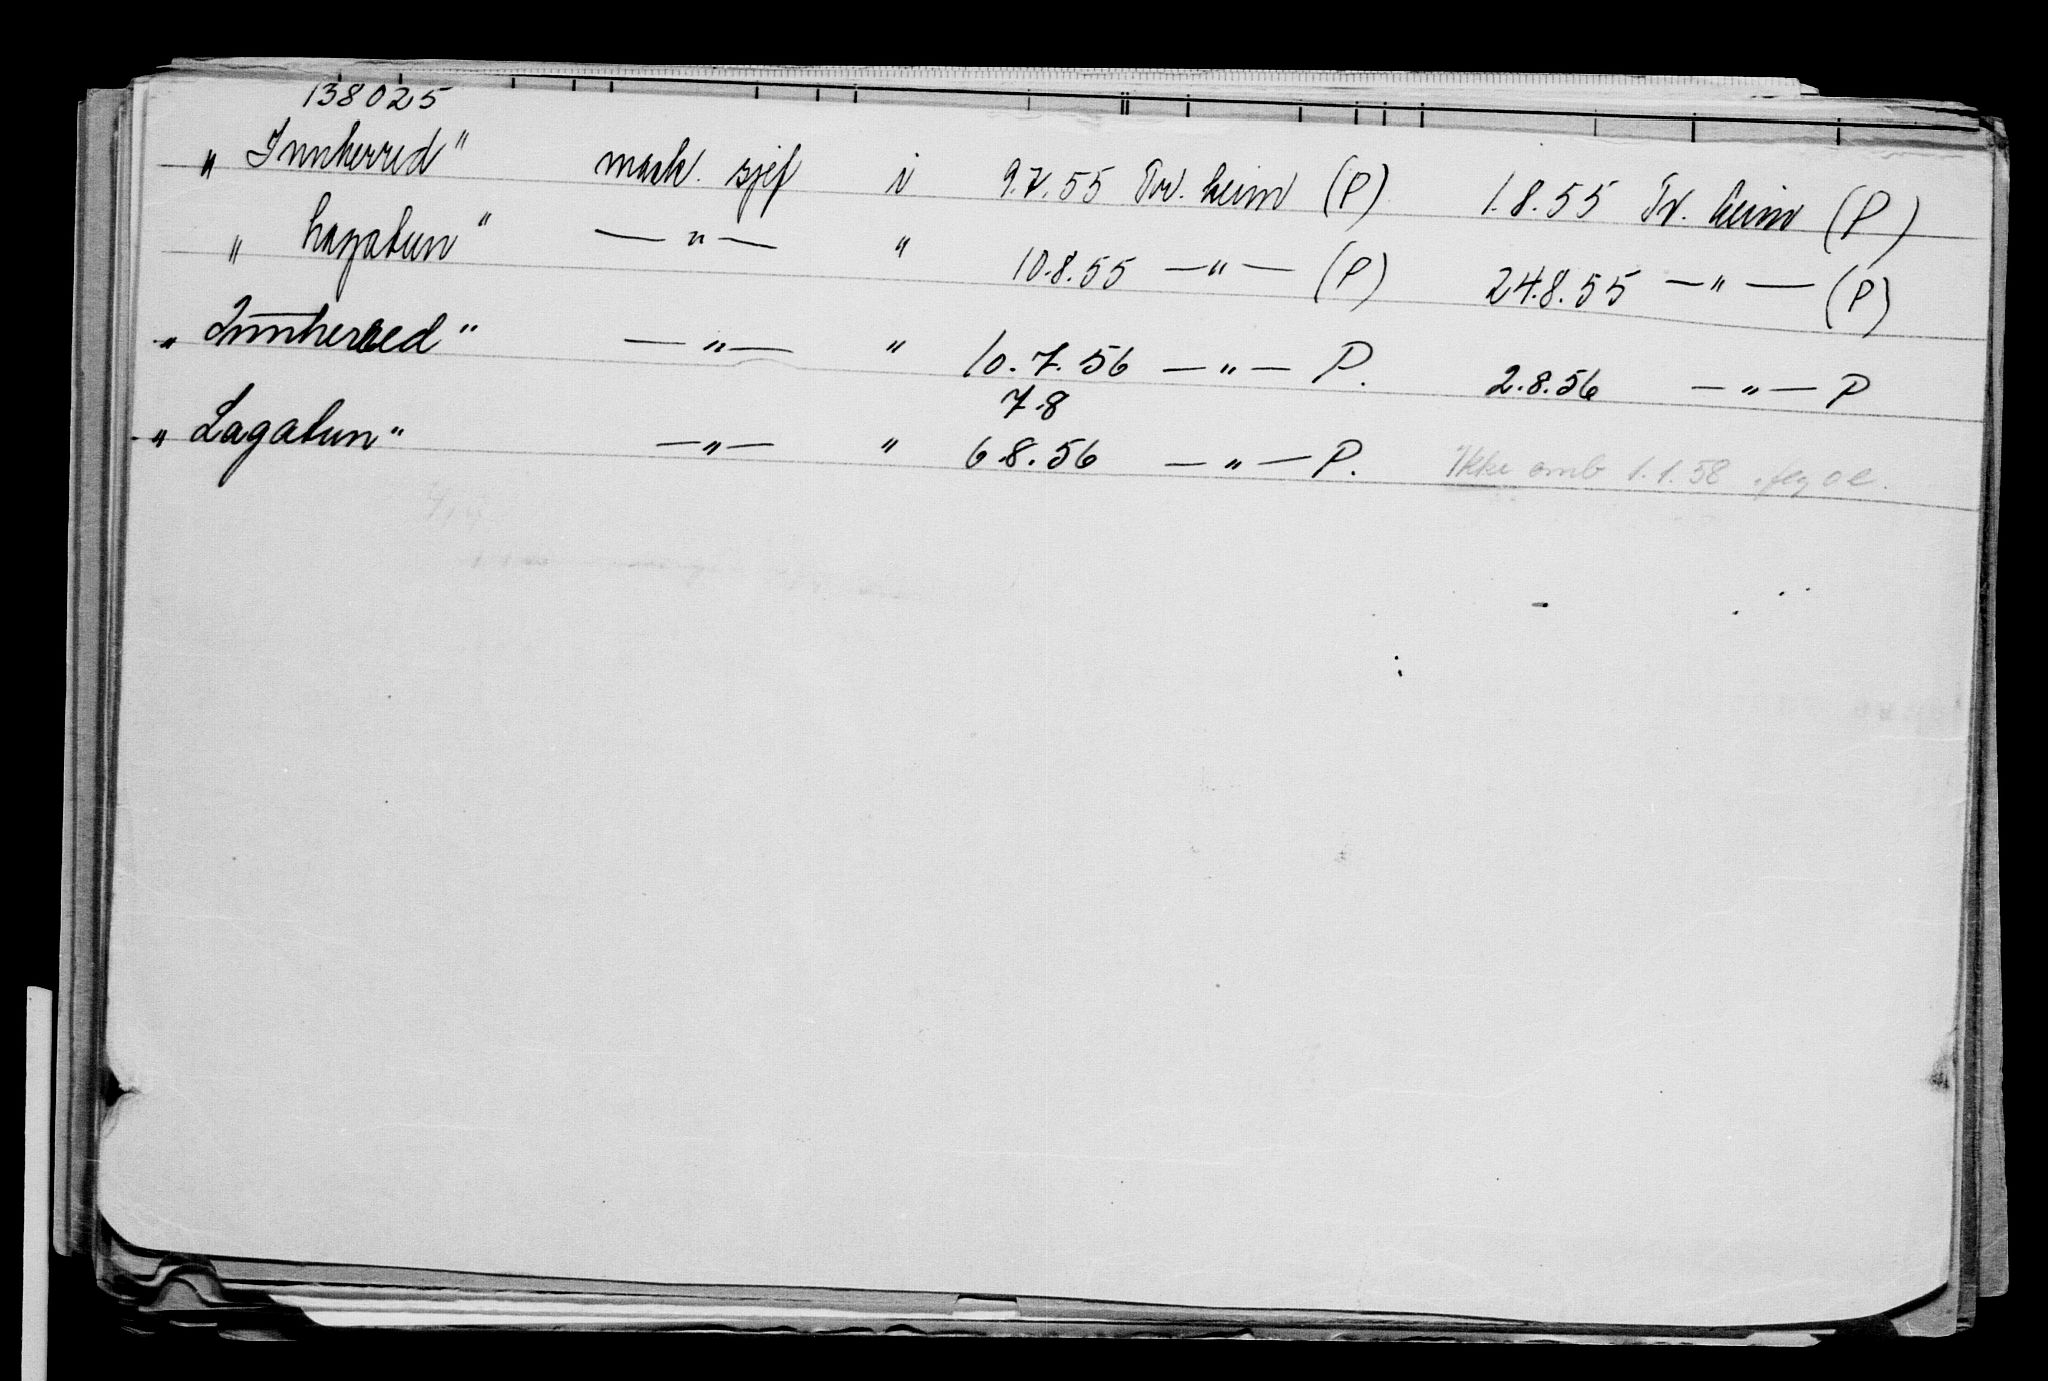 138025
„ Innherred " mask. sjef i 9.7.55 Tr. heim (P) 1.8.55 Tr. heim (P)
„ Lagatun " — " — " 10.8.55 — " — (P) 24.8.55 — " — (P)
„ Innherred " — " — " 10.7.56 — " — P. 2.8.56 — " — P
7.8
„ Lagatun " — " — " 6.8.56 — " — P. Ikke omb 1.1.58